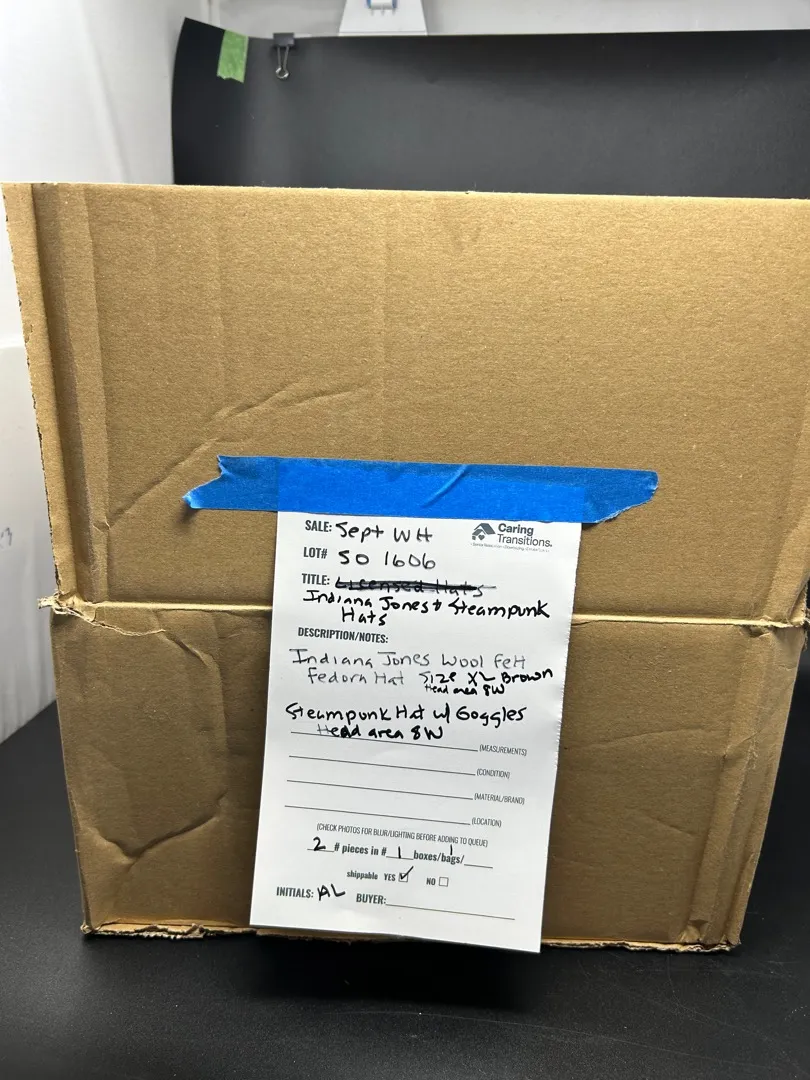 SALE: Sept WH
Caring
Transitions.
LOT# SO 1606
TITLE: Licensed Hats
Indiana Jones + Steampunk
Hats
DESCRIPTION/NOTES:
Indiana Jones Wool Felt
Fedora Hat Size XL Brown
Head area 8W
Steampunk Hat w/ Goggles
Head area 8W
(MEASUREMENTS)
(CONDITION)
(MATERIAL/BRAND)
(LOCATION)
(CHECK PHOTOS FOR BLUR/LIGHTING BEFORE ADDING TO QUEUE)
2 # pieces in # 1 boxes/bags/
shippable YES ✓ NO
INITIALS: AL BUYER: